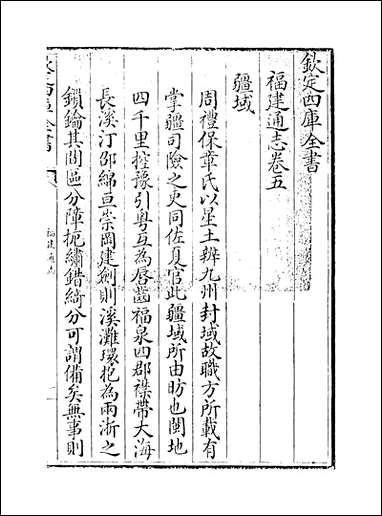 欽定四庫全書
福建通志卷五
疆域
周禮保章氏以星土辨九州封域故職方所載有
掌疆司險之吏同佐夏官此疆域所由昉也閩地
四千里控豫引粤互為唇齒福泉四郡襟帶大海
長溪汀邵綿亘崇岡建劍則溪灘環抱為兩浙之
鎖鑰其間區分障扼繡錯綺分可謂備矣無事則
福建通志